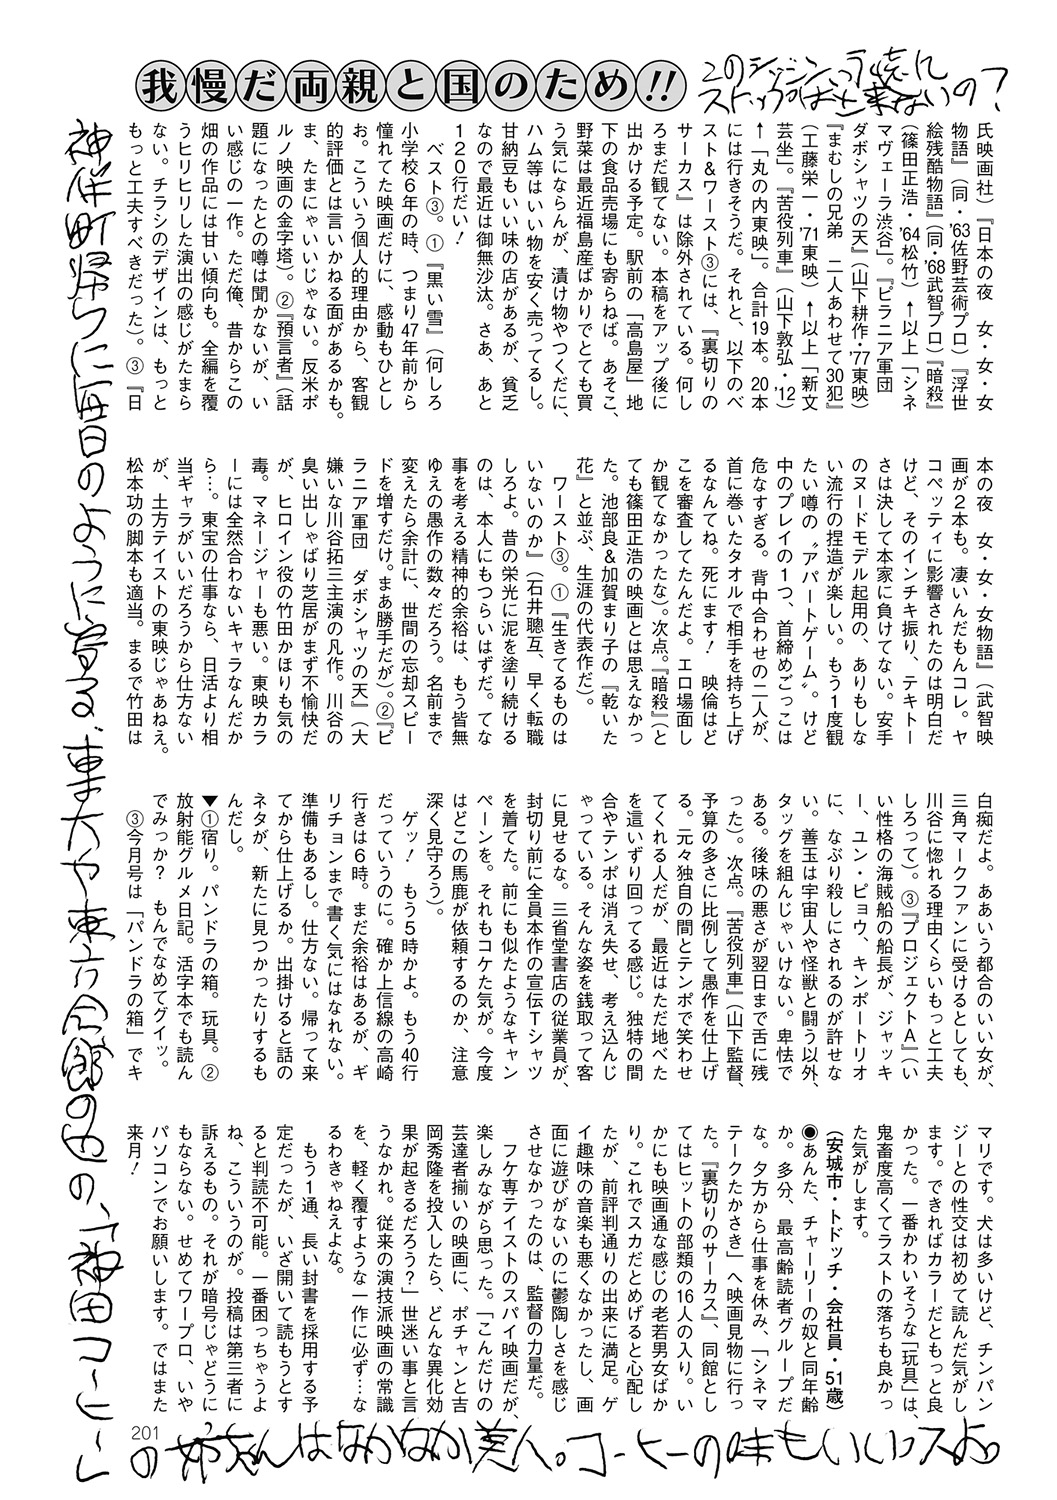 我慢だ両親と国のため!!
氏映画社)『日本の夜　女・女・女
物語』(同・'63佐野芸術プロ)『浮世
絵残酷物語』(同・'68武智プロ)『暗殺』
(篠田正浩・'64松竹)↑以上「シネ
マヴェーラ渋谷」。『ピラニア軍団
ダボシャツの天』(山下耕作・'77東映)
『まむしの兄弟　二人あわせて30犯』
(工藤栄一・'71東映)↑以上「新文
芸坐」。『苦役列車』(山下敦弘・'12)
↑「丸の内東映」。合計19本。20本
には行きそうだ。それと、以下のベ
スト&ワースト③には、『裏切りの
サーカス』は除外されている。何し
ろまだ観てない。本稿をアップ後に
出かける予定。駅前の「高島屋」地
下の食品売場にも寄らねば。あそこ、
野菜は最近福島産ばかりでとても買
う気にならんが、漬け物やつくだに、
ハム等はいい物を安く売ってるし。
甘納豆もいい味の店があるが、貧乏
なので最近は御無沙汰。さあ、あと
120行だい!
　ベスト③。①『黒い雪』(何しろ
小学校6年の時、つまり47年前から
憧れてた映画だけに、感動もひとし
お。こういう個人的理由から、客観
的評価とは言いかねる面があるかも。
ま、たまにゃいいじゃない。反米ポ
ルノ映画の金字塔)。②『預言者』(話
題になったとの噂は聞かないが、い
い感じの一作。ただ俺、昔からこの
畑の作品には甘い傾向も。全編を覆
うヒリヒリした演出の感じがたまら
ない。チラシのデザインは、もっと
もっと工夫すべきだった)。③『日
本の夜　女・女・女物語』(武智映
画が2本も。凄いんだもんコレ。ヤ
コペッティに影響されたのは明白だ
けど、そのインチキ振り、テキトー
さは決して本家に負けてない。安手
のヌードモデル起用の、ありもしな
い流行の捏造が楽しい。もう1度観
たい噂の〝アパートゲーム〟。けど
中のプレイの1つ、首締めごっこは
危なすぎる。背中合わせの二人が、
首に巻いたタオルで相手を持ち上げ
るなんてね。死にます!　映倫はど
こを審査してたんだよ。エロ場面し
か観てなかったな)。次点。『暗殺』(と
ても篠田正浩の映画とは思えなかっ
た。池部良&加賀まり子の『乾いた
花』と並ぶ、生涯の代表作だ)。
　ワースト③。①『生きてるものは
いないのか』(石井聰互、早く転職
しろよ。昔の栄光に泥を塗り続ける
のは、本人にもつらいはずだ。てな
事を考える精神的余裕は、もう皆無
ゆえの愚作の数々だろう。名前まで
変えたら余計に、世間の忘却スピー
ドを増すだけ。まあ勝手だが)。②『ピ
ラニア軍団　ダボシャツの天』(大
嫌いな川谷拓三主演の凡作。川谷の
臭い出しゃばり芝居がまず不愉快だ
が、ヒロイン役の竹田かほりも気の
毒。マネージャーも悪い。東映カラ
ーには全然合わないキャラなんだか
ら…。東宝の仕事なら、日活より相
当ギャラがいいだろうから仕方ない
が、土方テイストの東映じゃあねえ。
松本功の脚本も適当。まるで竹田は
白痴だよ。ああいう都合のいい女が、
三角マークファンに受けるとしても、
川谷に惚れる理由くらいもっと工夫
しろって)。③『プロジェクトA』(い
い性格の海賊船の船長が、ジャッキ
ー、ユン・ピョウ、キンポートリオ
に、なぶり殺しにされるのが許せな
い。善玉は宇宙人や怪獣と闘う以外、
タッグを組んじゃいけない。卑怯で
ある。後味の悪さが翌日まで舌に残
った)。次点。『苦役列車』(山下監督、
予算の多さに比例して愚作を仕上げ
る。元々独自の間とテンポで笑わせ
てくれる人だが、最近はただ地べた
を這いずり回ってる感じ。独特の間
合やテンポは消え失せ、考え込んじ
ゃっている。そんな姿を銭取って客
に見せるな。三省堂書店の従業員が、
封切り前に全員本作の宣伝Tシャツ
を着てた。前にも似たようなキャン
ペーンを。それもコケた気が。今度
はどこの馬鹿が依頼するのか、注意
深く見守ろう)。
　ゲッ!　もう5時かよ。もう40行
だっていうのに。確か上信線の高崎
行きは6時。まだ余裕はあるが、ギ
リチョンまで書く気にはなれない。
準備もあるし。仕方ない。帰って来
てから仕上げるか。出掛けると話の
ネタが、新たに見つかったりするも
んだし。
▼①宿り。パンドラの箱。玩具。②
放射能グルメ日記。活字本でも読ん
でみっか?　もんでなめてグイッ。
　③今月号は「パンドラの箱」でキ
マリです。犬は多いけど、チンパン
ジーとの性交は初めて読んだ気がし
ます。できればカラーだともっと良
かった。一番かわいそうな「玩具」は、
鬼畜度高くてラストの落ちも良かっ
た気がします。
(安城市・トドッチ・会社員・51歳)
◉あんた、チャーリーの奴と同年齢
か。多分、最高齢読者グループだ
な。夕方から仕事を休み、「シネマ
テークたかさき」へ映画見物に行っ
た。『裏切りのサーカス』、同館とし
てはヒットの部類の16人の入り。い
かにも映画通な感じの老若男女ばか
り。これでスカだとめげると心配し
たが、前評判通りの出来に満足。ゲ
イ趣味の音楽も悪くなかったし、画
面に遊びがないのに鬱陶しさを感じ
させなかったのは、監督の力量だ。
　フケ専テイストのスパイ映画だが、
楽しみながら思った。「こんだけの
芸達者揃いの映画に、ポチャンと吉
岡秀隆を投入したら、どんな異化効
果が起きるだろう?」世迷い事と言
うなかれ。従来の演技派映画の常識
を、軽く覆すような一作に必ず…な
るわきゃねえよな。
　もう1通、長い封書を採用する予
定だったが、いざ開いて読もうとす
ると判読不可能。一番困っちゃうよ
ね、こういうのが。投稿は第三者に
訴えるもの。それが暗号じゃどうに
もならない。せめてワープロ、いや
パソコンでお願いします。ではまた
来月!
神保町帰りに毎日のように寄る、東大や東方会館の 「神田コーヒー」
の姉ちゃんはなかなか美人。コーヒーの味もいいっスよ。
201